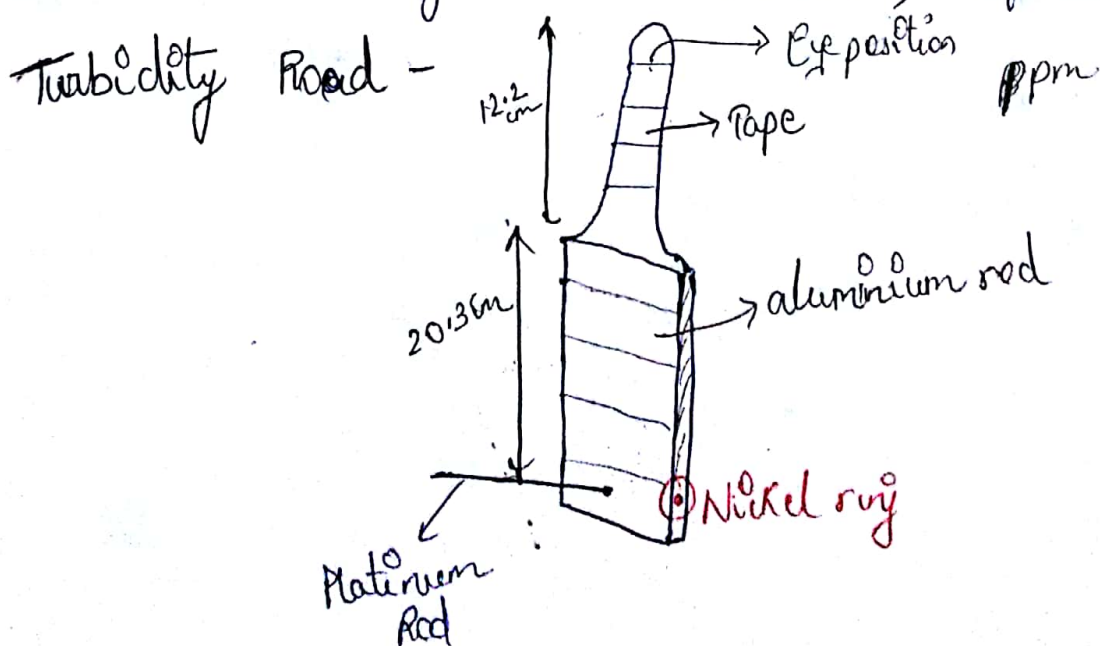 Turbidity Road -
12.2 cm
Eye position
ppm
Tape
20.3cm
aluminium rod
Nickel ring
Platinum
Rod